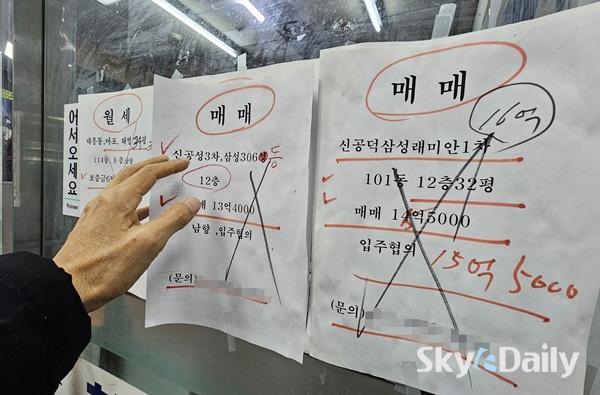 어서오세요
Welcome
월 세
대흥동,마포, 태영
114동, 8층,남향
보증금6
매 매
신공성3차,삼성306동
12층
매매 13억4000
남향 ,입주협의
(문의)
매 매
16억
신공덕삼성래미안1차
101동 12층32평
매매 14억5000
입주협의
15억 5000
(문의)
SkyeDaily